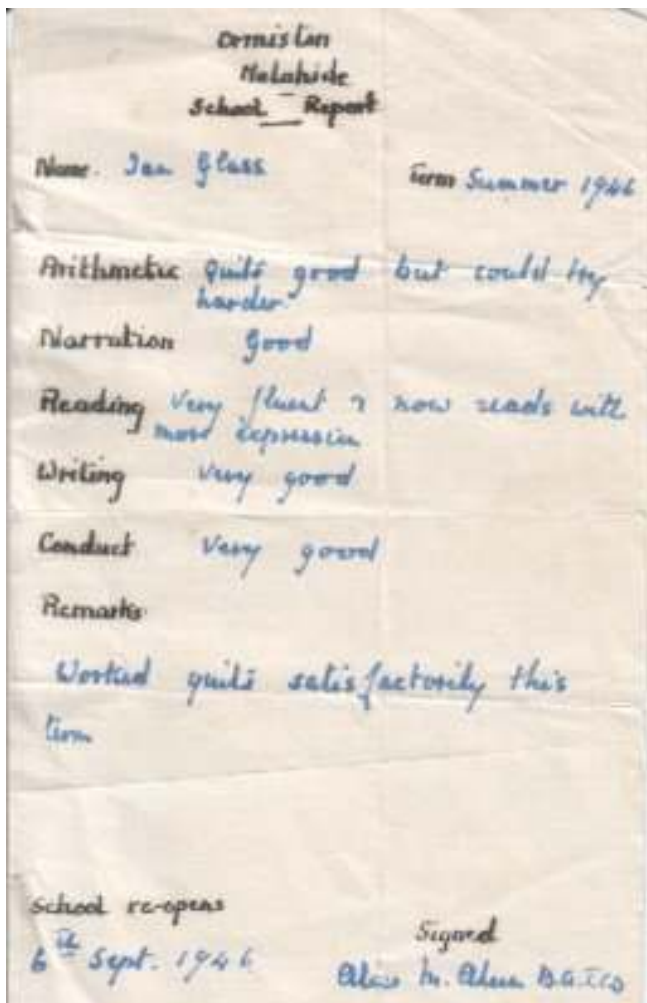 Ormiston
Malahide
School Report
Name. Ian Glass Term Summer 1946
Arithmetic quite good but could try
harder.
Narration good
Reading Very fluent & now reads with
more expression
Writing very good
Conduct very good
Remarks
Worked quite satisfactorily this
term
School re-opens
6th Sept. 1946
Signed
M. B.A. T.C.D